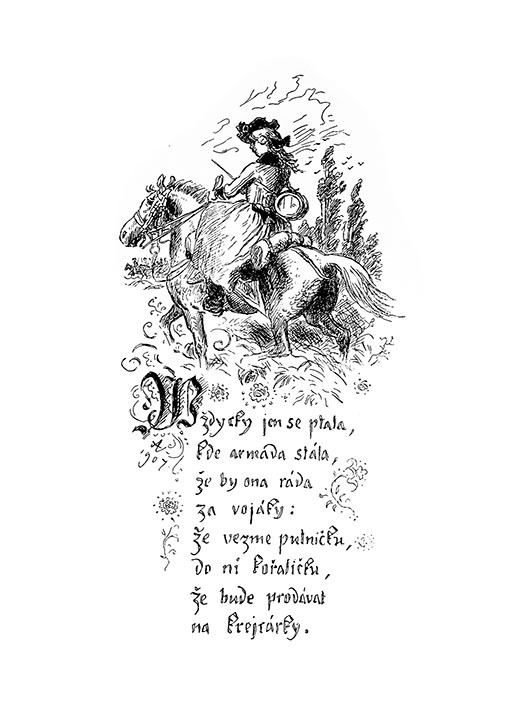 Vždycky jen se ptala,
kde armáda stála,
že by ona ráda
za vojáky:
Že vezme putničku,
do ní kořaličku,
že bude prodávat
na krejcárky.
1907